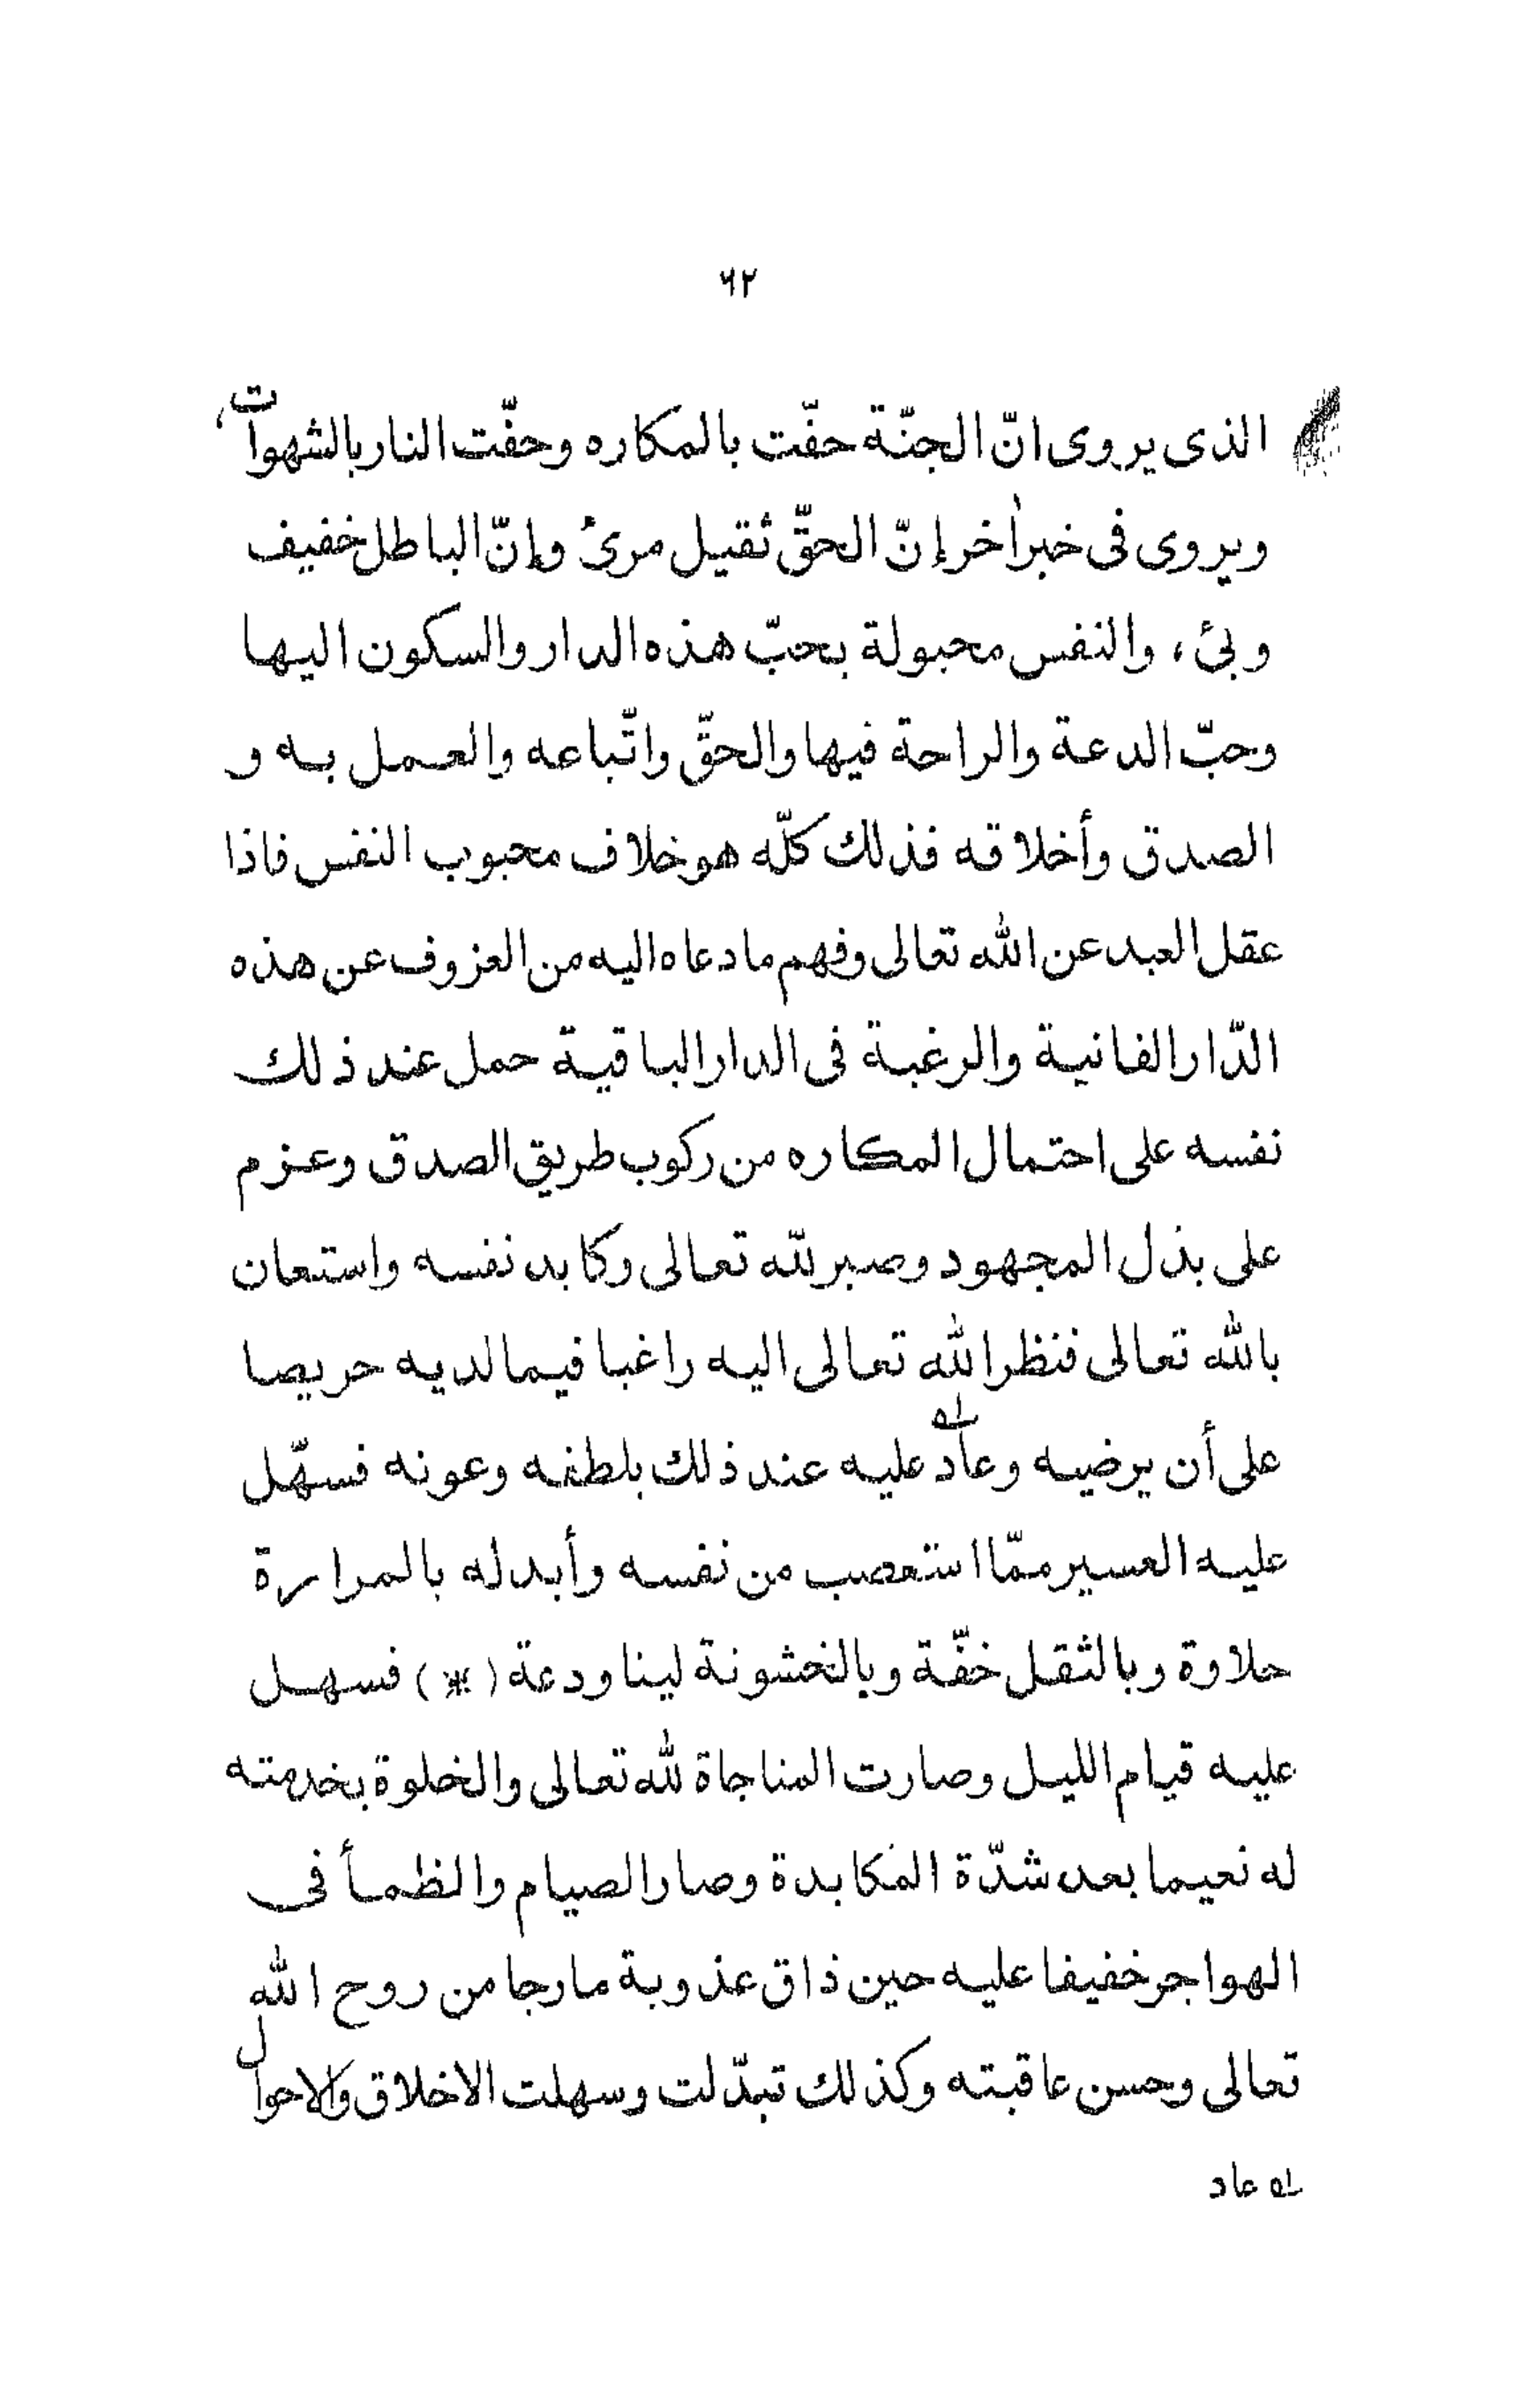 ٦٢
الذى يروى انّ الجنّة حفّت بالمكاره وحفّت النار بالشهوات،
ويروى فى خبر اٰخر إنّ الحقّ ثقيل مرئ وإنّ الباطل خفيف
وبئ، والنفس محبولة بحبّ هذه الدار والسكون اليها
وحبّ الدعة والراحة فيها والحقّ واتّباعه والعمل به و
الصدق وأخلاقه فذلك كلّه هو خلاف محبوب النفس فاذا
عقل العبد عن الله تعالى وفهم ما دعاه اليه من العزوف عن هذه
الدّار الفانية والرغبة فى الدار الباقية حمل عند ذلك
نفسه على احتمال المكاره من ركوب طريق الصدق وعزم
على بذل المجهود وصبر لله تعالى وكابد نفسه واستعان
بالله تعالى فنظر الله تعالى اليه راغبا فيما لديه حريصا
على أن يرضيه وعاد عليه عند ذلك بلطفه وعونه فسهّل
عليه العسير ممّا استعصب من نفسه وأبدله بالمرارة
حلاوة وبالثقل خفّة وبالخشونة لينا ودعة (*) فسهل
عليه قيام الليل وصارت المناجاة لله تعالى والخلوة بخدمته
له نعيما بعد شدّة المكابدة وصار الصيام والظمأ فى
الهواجر خفيفا عليه حين ذاق عذوبة ما رجا من روح الله
تعالى وحسن عاقبته وكذلك تبدّلت وسهلت الاخلاق والاحوال
عاد